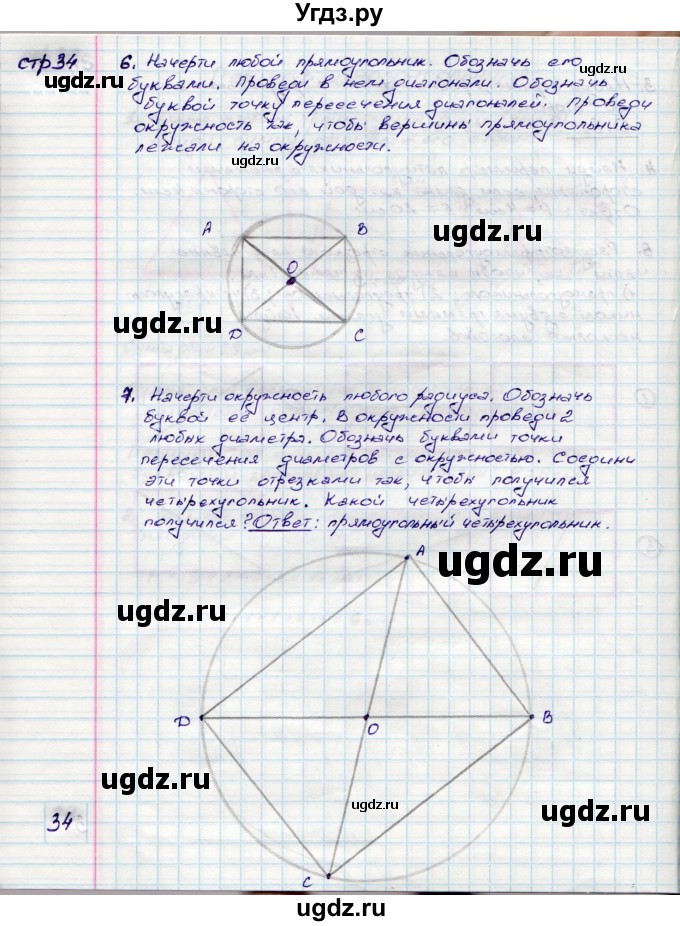 Угдз.ру
стр34
6. Начерти любой прямоугольник. Обозначь его
буквами. Проведи в нем диагонали. Обозначь
буквой точку пересечения диагоналей. Проведи
окружность так, чтобы вершины прямоугольника
лежали на окружности.
ugdz.ru
A B
ugdz.ru
O
ugdz.ru
D C
7. Начерти окружность любого радиуса. Обозначь
буквой её центр. В окружности проведи 2
любых диаметра. Обозначь буквами точки
пересечения диаметров с окружностью. Соедини
эти точки отрезками так, чтобы получился
четырехугольник. Какой четырехугольник
получился? Ответ: прямоугольный четырехугольник.
A
ugdz.ru
ugdz.ru
D O B
ugdz.ru
ugdz.ru
ugdz.ru
34
C
ugdz.ru